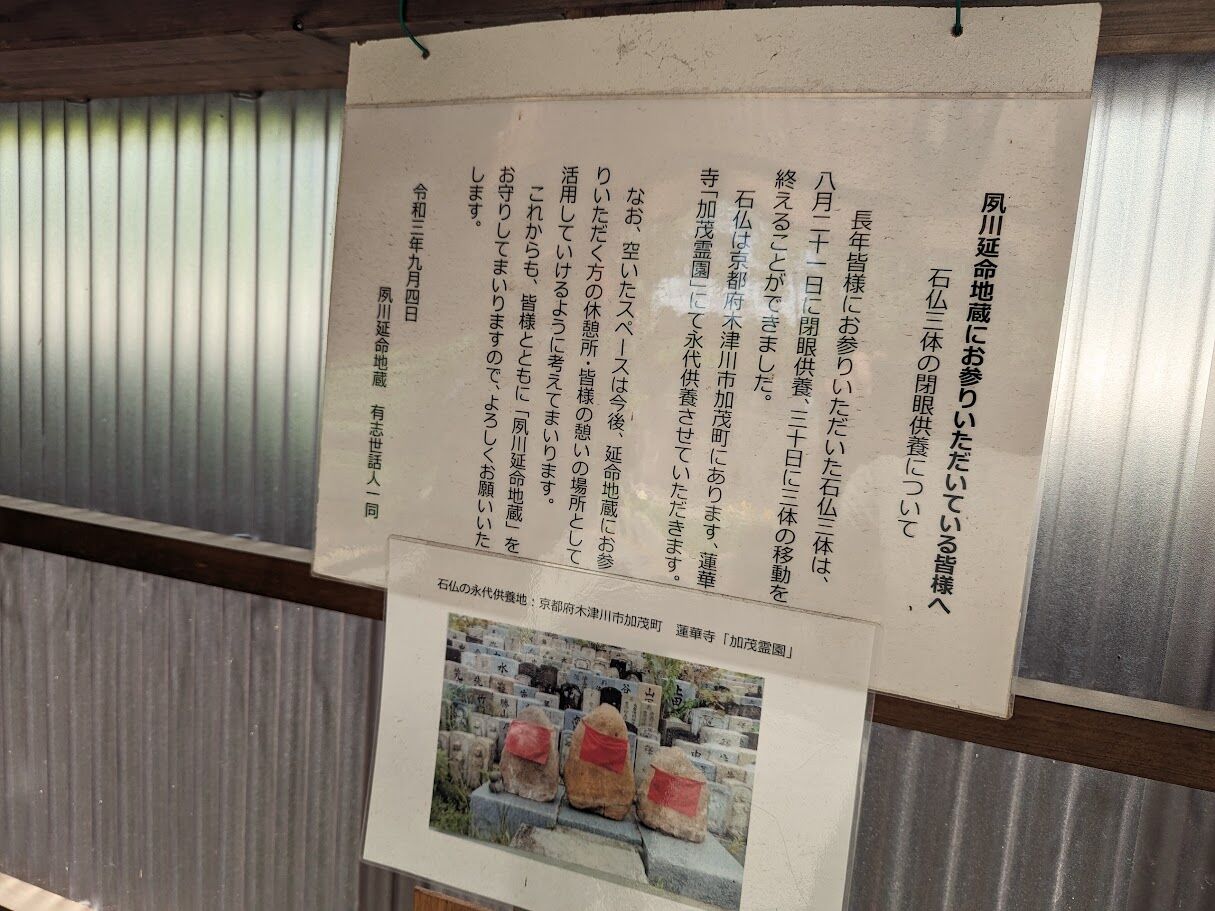 夙川延命地蔵にお参りいただいている皆様へ
石仏三体の閉眼供養について
長年皆様にお参りいただいた石仏三体は、
八月二十一日に閉眼供養、三十日に三体の移動を
終えることができました。
石仏は京都府木津川市加茂町にあります、蓮華
寺「加茂霊園」にて永代供養させていただきます。
なお、空いたスペースは今後、延命地蔵にお参
りいただく方の休憩所・皆様の憩いの場所として
活用していけるように考えてまいります。
これからも、皆様とともに「夙川延命地蔵」を
お守りしてまいりますので、よろしくお願いいた
します。
令和三年九月四日
夙川延命地蔵 有志世話人一同
石仏の永代供養地：京都府木津川市加茂町 蓮華寺「加茂霊園」
水
谷
山
上田